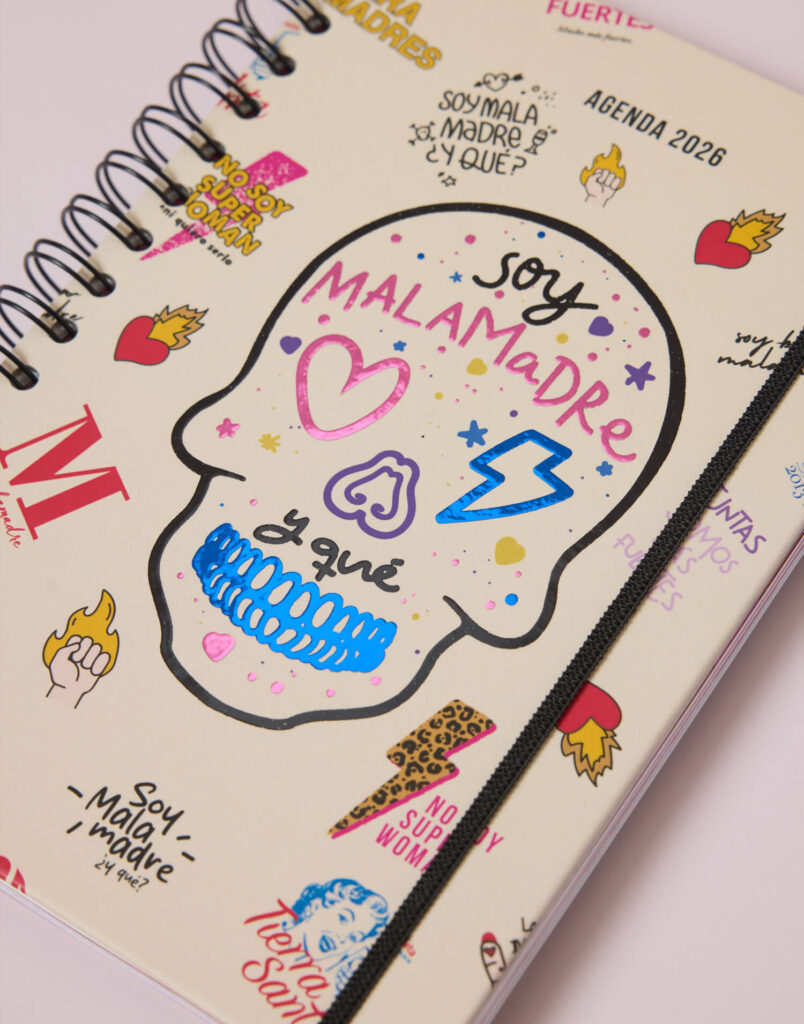 MADRES
FUERTES
AGENDA 2026
SOY MALA
MADRE
¿Y QUÉ?
NO SOY
SUPER
WOMAN
*ni quiero serlo
soy
MALAMaDRe
y qué
soy
mala
M
malamadre
2015
JUNTAS
SOMOS
MÁS
FUERTES
NO SOY
SUPER
WOMAN
Soy
Mala
madre
¿y qué?
Tierra
Sant